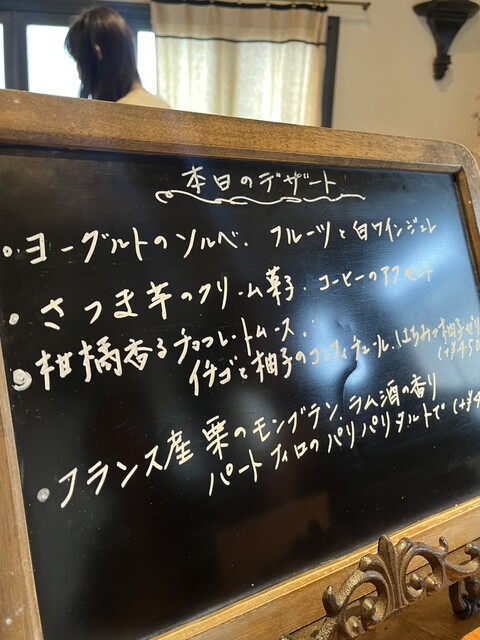 本日のデザート
・ヨーグルトのソルベ. フルーツと白ワインジュレ
・さつま芋のクリーム菓子. コーヒーのアクセント
・柑橘香るチョコレートムース.
イチゴと柚子のコンフィチュール. はちみつ柚子ゼリ
・フランス産 栗のモンブラン. ラム酒の香り
パートフィロのパリパリタルトで